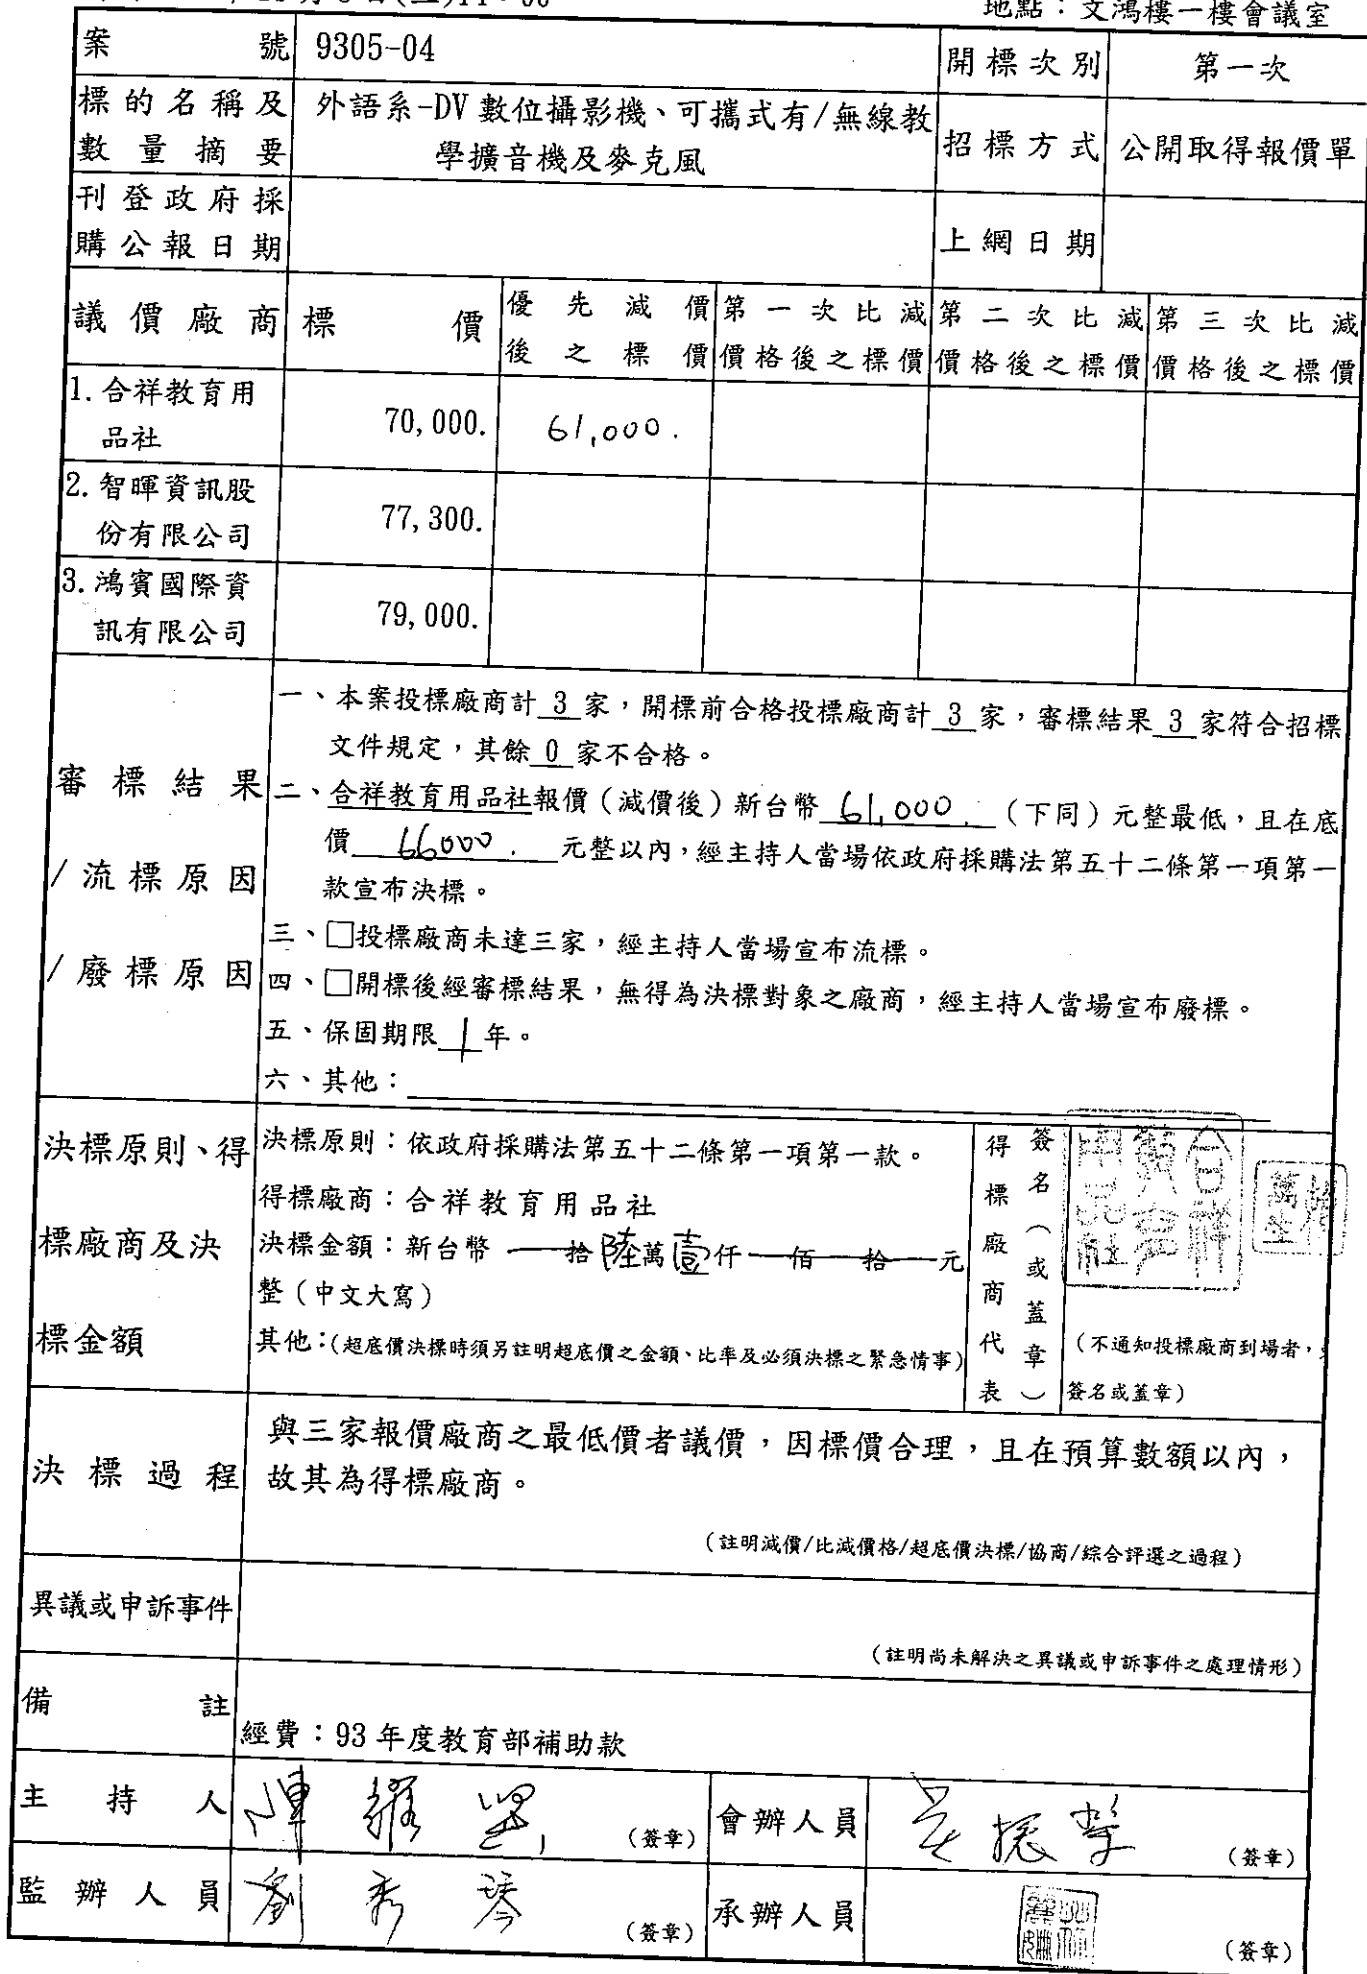 地點：文鴻樓一樓會議室
案號 9305-04 開標次別 第一次
標的名稱及
數量摘要
外語系-DV 數位攝影機、可攜式有/無線教
學擴音機及麥克風
招標方式 公開取得報價單
刊登政府採
購公報日期
上網日期
議價廠商 標價
優先減價
後之標價
第一次比減
價格後之標價
第二次比減
價格後之標價
第三次比減
價格後之標價
1.合祥教育用
品社
70,000. 61,000.
2.智暉資訊股
份有限公司
77,300.
3.鴻賓國際資
訊有限公司
79,000.
審標結果
/流標原因
/廢標原因
一、本案投標廠商計 3 家，開標前合格投標廠商計 3 家，審標結果 3 家符合招標
文件規定，其餘 0 家不合格。
二、合祥教育用品社報價（減價後）新台幣 61,000. （下同）元整最低，且在底
價 66000. 元整以內，經主持人當場依政府採購法第五十二條第一項第一
款宣布決標。
三、□投標廠商未達三家，經主持人當場宣布流標。
四、□開標後經審標結果，無得為決標對象之廠商，經主持人當場宣布廢標。
五、保固期限 1 年。
六、其他：
決標原則、得
標廠商及決
標金額
決標原則：依政府採購法第五十二條第一項第一款。
得標廠商：合祥教育用品社
決標金額：新台幣 — 拾陸萬壹仟 — 佰 — 拾 — 元
整（中文大寫）
其他：（超底價決標時須另註明超底價之金額、比率及必須決標之緊急情事）
得標廠商代表
簽名（或蓋章）
合祥
教育
用品社
（不通知投標廠商到場者，
簽名或蓋章）
決標過程
與三家報價廠商之最低價者議價，因標價合理，且在預算數額以內，
故其為得標廠商。
（註明減價/比減價格/超底價決標/協商/綜合評選之過程）
異議或申訴事件
（註明尚未解決之異議或申訴事件之處理情形）
備註
經費：93 年度教育部補助款
主持人 陳 （簽章） 會辦人員 吳振 （簽章）
監辦人員 劉秀琴 （簽章） 承辦人員 （簽章）